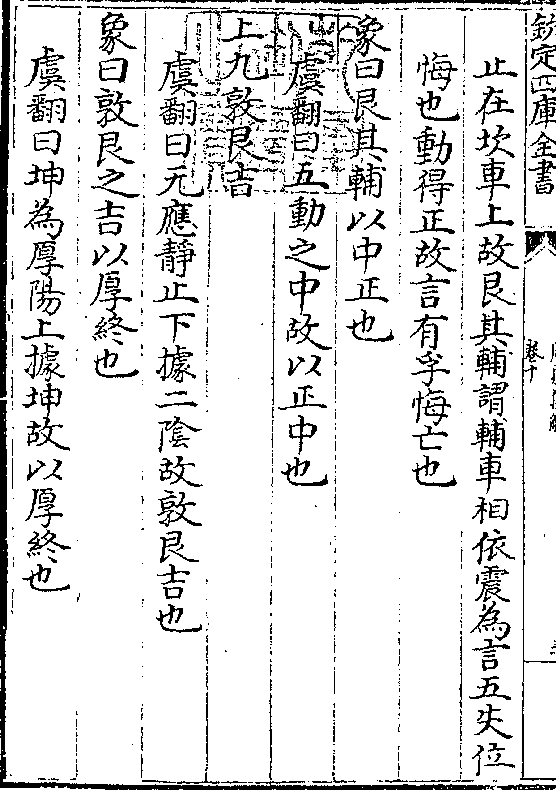 欽定四庫全書
卷十
止在坎車上故艮其輔謂輔車相依震為言五失位
悔也動得正故言有孚悔亡也
象曰艮其輔以中正也
虞翻曰五動之中故以正中也
上九敦艮吉
虞翻曰无應靜止下據二陰故敦艮吉也
象曰敦艮之吉以厚終也
虞翻曰坤為厚陽上據坤故以厚終也